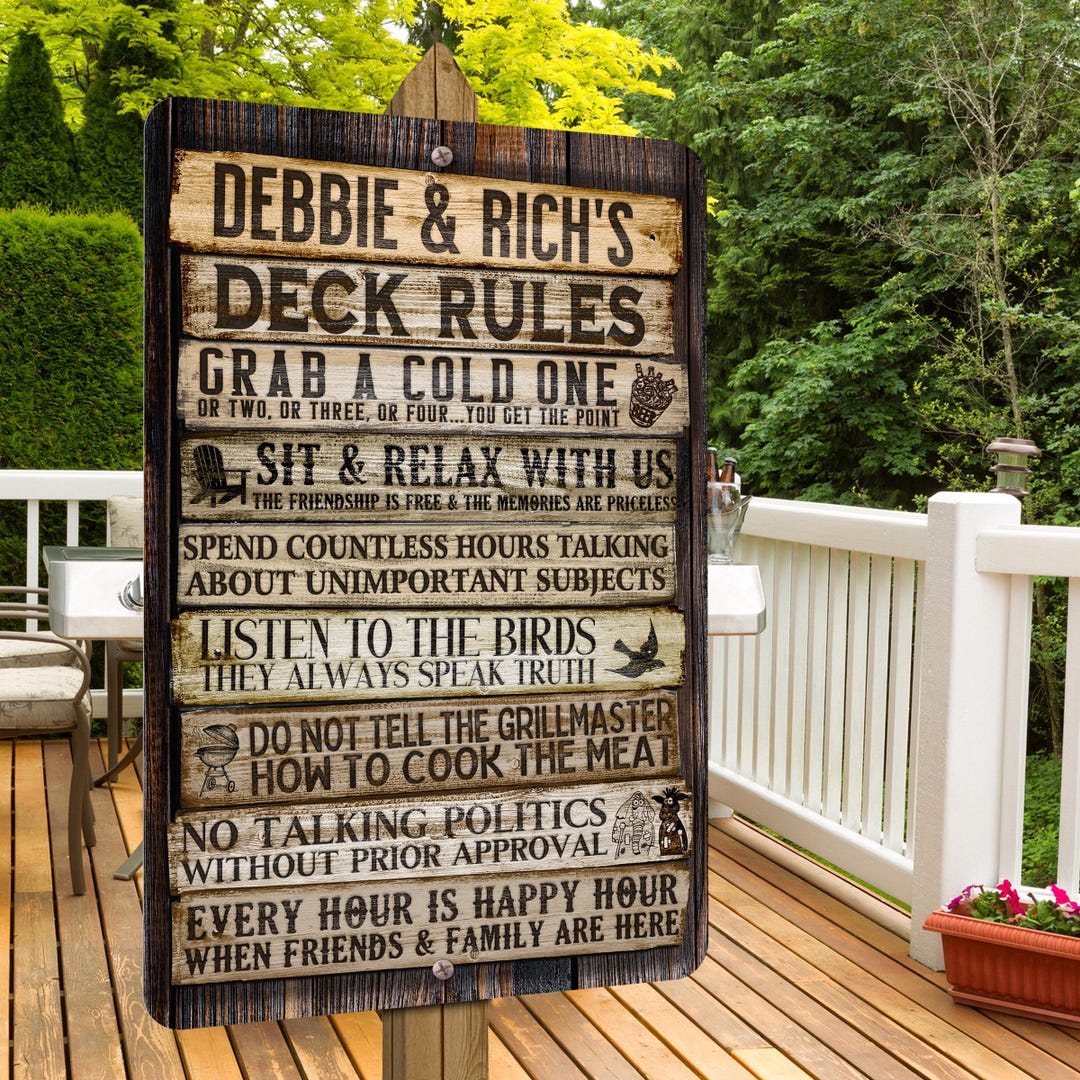 DEBBIE & RICH'S
DECK RULES
GRAB A COLD ONE
OR TWO, OR THREE, OR FOUR...YOU GET THE POINT
SIT & RELAX WITH US
THE FRIENDSHIP IS FREE & THE MEMORIES ARE PRICELESS
SPEND COUNTLESS HOURS TALKING
ABOUT UNIMPORTANT SUBJECTS
LISTEN TO THE BIRDS
THEY ALWAYS SPEAK TRUTH
DO NOT TELL THE GRILLMASTER
HOW TO COOK THE MEAT
NO TALKING POLITICS
WITHOUT PRIOR APPROVAL
EVERY HOUR IS HAPPY HOUR
WHEN FRIENDS & FAMILY ARE HERE